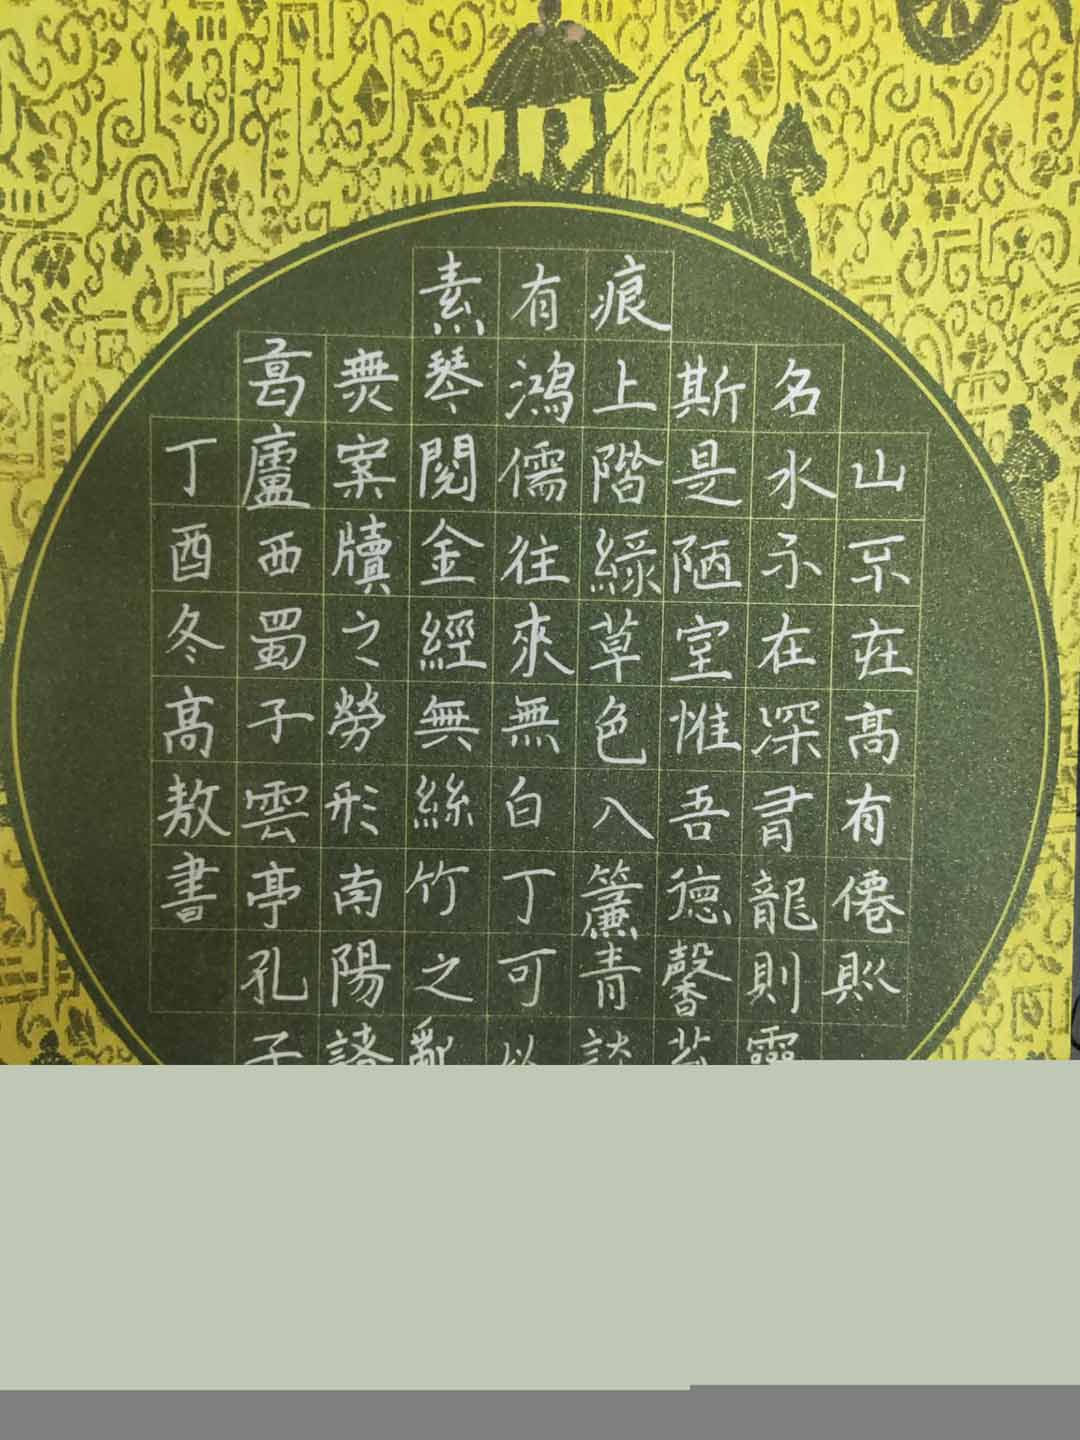 山不在高有僊則
名水不在深有龍則靈
斯是陋室惟吾德馨
痕上階綠草色入簾青談
有鴻儒往來無白丁可以
素琴閱金經無絲竹之亂
無案牘之勞形南陽諸
葛廬西蜀子雲亭孔子
丁酉冬高敖書